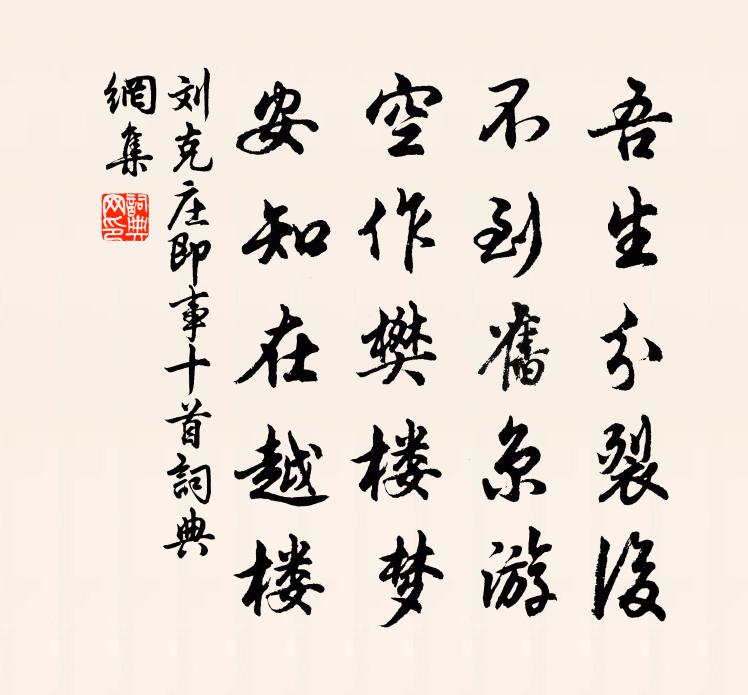 吾生分裂後
不到舊京游
空作樊楼梦
安知在越楼
刘克庄即事十首詞典
網集
詞典
网印